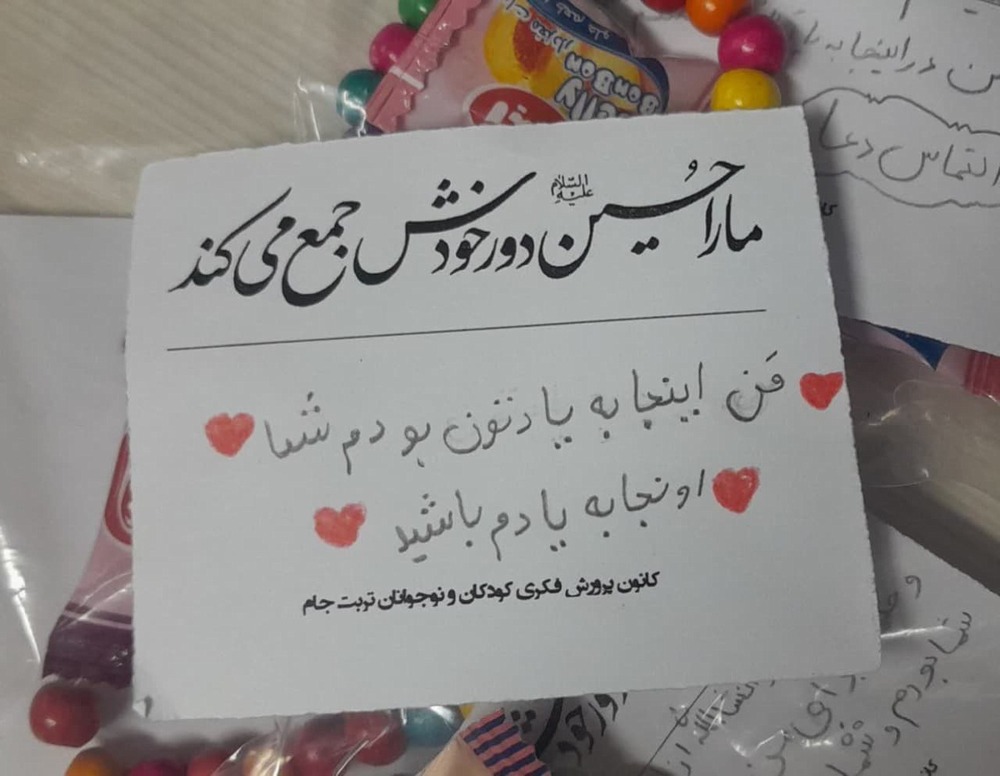 ما را حسین علیه‌السلام دور خودش جمع می‌کند
من اینجا به یادتون بودم شما
اونجا به یادم باشید
کانون پرورش فکری کودکان و نوجوانان تربت جام
در اینجا به
التماس دعا
Jelly
BonBon
شما بودم و